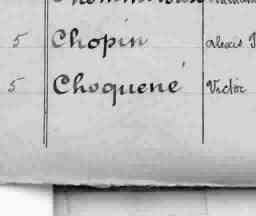 5 Chopin Alexis
5 Choquené Victor